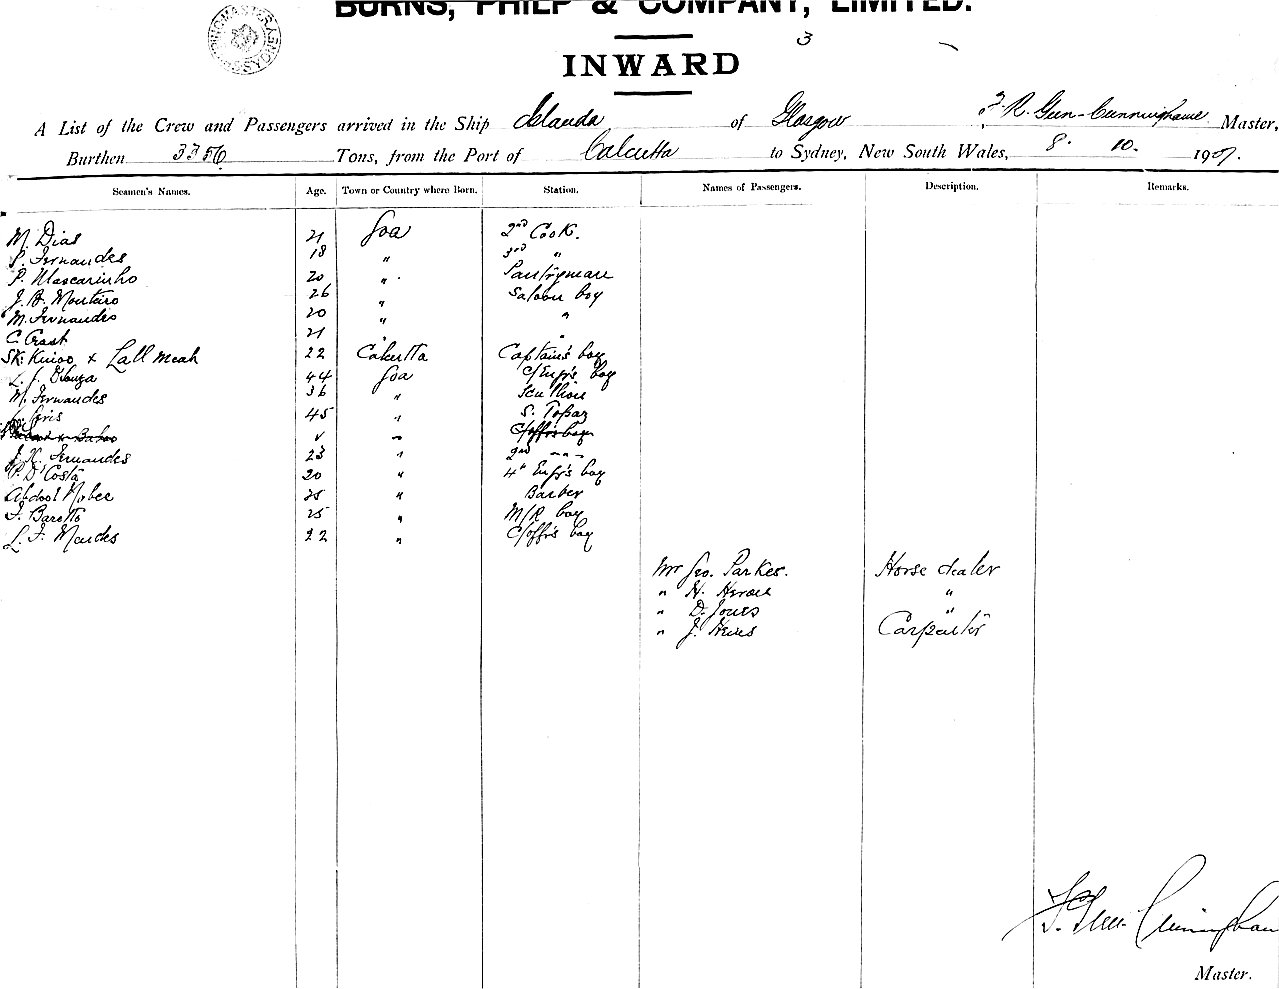 BURNS, PHILP & COMPANY, LIMITED.
3
INWARD
A List of the Crew and Passengers arrived in the Ship Islanda of Glasgow, R. Gun-Cunninghame Master,
Burthen 3356 Tons, from the Port of Calcutta to Sydney, New South Wales, 8. 10. 1907.
Seamen's Names. Age. Town or Country where Born. Station. Names of Passengers. Description. Remarks.
M. Dias 21 Goa 2nd Cook.
P. Fernandes 18 " 3rd "
P. Mascarinho 20 " Pantryman
J. B. Monteiro 26 " Saloon boy
M. Fernandes 20 " "
C. Crast 21 " "
SK. x Lall meah 22 Calcutta Captain's boy
L. J. D'Souza 44 Goa C/Engr's boy
M. Fernandes 36 "
45 " S. Topaz
" C/offr's boy
J. X. Fernandes 23 " 2nd - - -
P. D'Costa 20 " 4th Engr's boy
Abdool 25 " Barber
J. Baretto 25 " M/R boy
L. F. Mendes 22 " C/offr's boy
Mr Geo. Parkes. Horse dealer
" H. "
" D. Jones "
" J. Carpenter
F. Gun-Cunningham
Master.